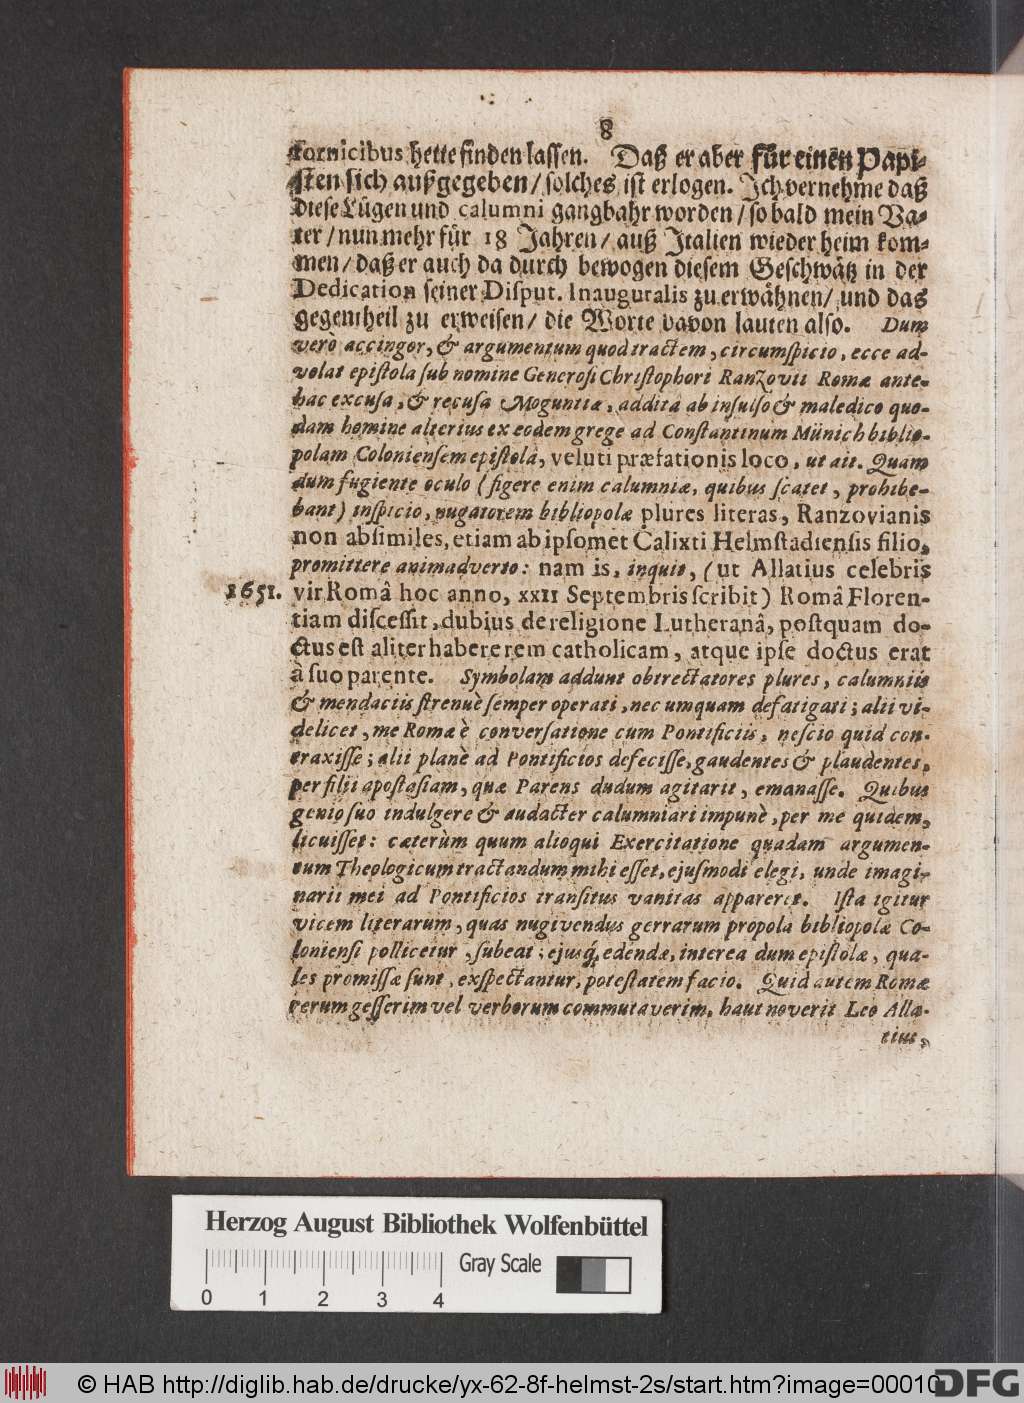 8
fornicibus hette finden lassen. Daß er aber für einen Papi-
sten sich außgegeben / solches ist erlogen. Ich vernehme daß
diese Lügen und calumni gangbahr worden / so bald mein Va-
ter / nunmehr für 18 Jahren / auß Italien wieder heim kom-
men / daß er auch da durch bewogen diesem Geschwätz in der
Dedication seiner Disput. Inauguralis zu erwähnen / und das
gegentheil zu erweisen / die Worte davon lauten also. Dum
verò accingor, & argumentum quod tractem, circumspicio, ecce ad-
volat epistola sub nomine Generosi Christophori Ranzovii Romæ ante-
hac excusa, & recusa Moguntiæ, additâ ab insulso & maledico quo-
dam homine alterius ex eodem grege ad Constantinum Münich biblio-
polam Coloniensem epistolâ, veluti præfationis loco, ut ait. Quam
dum fugiente oculo (figere enim calumniæ, quibus scatet, prohibe-
bant) inspicio, nugatorem bibliopolæ plures literas, Ranzovianis
non absimiles, etiam ab ipsomet Calixti Helmstadiensis filio,
promittere animadverto: nam is, inquit, (ut Allatius celebris
1651. vir Româ hoc anno, XXII Septembris scribit) Româ Floren-
tiam discessit, dubius de religione Lutheranâ, postquam do-
ctus est aliter habere rem catholicam, atque ipse doctus erat
à suo parente. Symbolam addunt obtrectatores plures, calumniis
& mendaciis strenuè semper operati, nec umquam defatigati; alii vi-
delicet, me Romæ è conversatione cum Pontificiis, nescio quid con-
traxisse; alii planè ad Pontificios defecisse, gaudentes & plaudentes,
per filii apostasiam, quæ Parens dudum agitarit, emanasse. Quibus
genio suo indulgere & audacter calumniari impunè, per me quidem,
licuisset: cæterùm quum alioqui Exercitatione quadam argumen-
tum Theologicum tractandum mihi esset, ejusmodi elegi, unde imagi-
narii mei ad Pontificios transitus vanitas appareret. Ista igitur
vicem literarum, quas nugivendus gerrarum propola bibliopolæ Co-
loniensi pollicetur, subeat; ejusq́; edendæ, interea dum epistolæ, qua-
les promissæ sunt, exspectantur, potestatem facio. Quid autem Romæ
rerum gesserim vel verborum commutaverim, haut noverit Leo Alla-
tius,
Herzog August Bibliothek Wolfenbüttel
Gray Scale
0 1 2 3 4
© HAB http://diglib.hab.de/drucke/yx-62-8f-helmst-2s/start.htm?image=00010
DFG